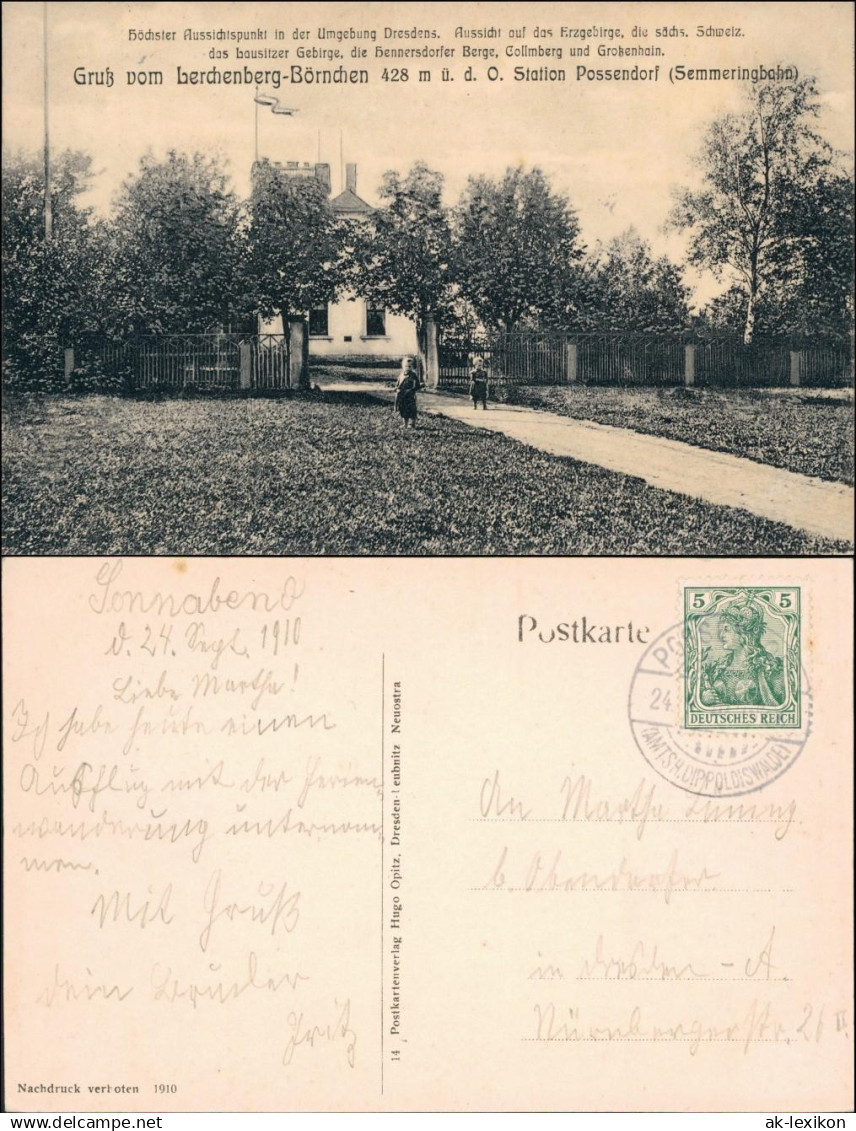 Höchster Aussichtspunkt in der Umgebung Dresdens. Aussicht auf das Erzgebirge, die sächs. Schweiz.
das Lausitzer Gebirge, die Hennersdorfer Berge, Collmberg und Großenhain.
Gruß vom Lerchenberg-Börnchen 428 m ü. d. O. Station Possendorf (Semmeringbahn)
Sonnabend
d. 24. Sept. 1910
Liebe Martha!
Ich habe heute einen
Ausflug mit der Ferien-
wanderung unternom-
men.
Mit Gruß
dein Bruder
Fritz
Nachdruck verboten 1910
14 Postkartenverlag Hugo Opitz, Dresden-Leubnitz Neuostra
Postkarte
5 5
DEUTSCHES REICH
24.
(AMTSH. DIPPOLDISWALDE)
An Martha
b. Obendorfer
in Dresden-A.
Nürnbergerstr. 26 II.
ak-lexikon
ak-lexikon.com